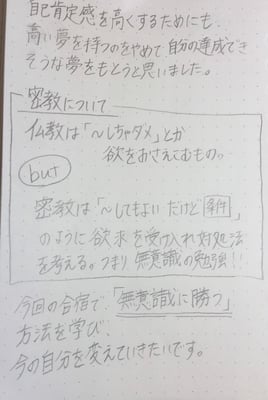 自己肯定感を高くするためにも、
高い夢を持つのをやめて自分の達成でき
そうな夢をもとうと思いました。
密教について
仏教は「〜しちゃダメ」とか
欲をおさえこむもの。
but
密教は「〜してもよいだけど条件」
のように欲求を受け入れ対処法
を考える。つまり無意識の勉強!!
今回の合宿で、「無意識に勝つ」
方法を学び、
今の自分を変えていきたいです。